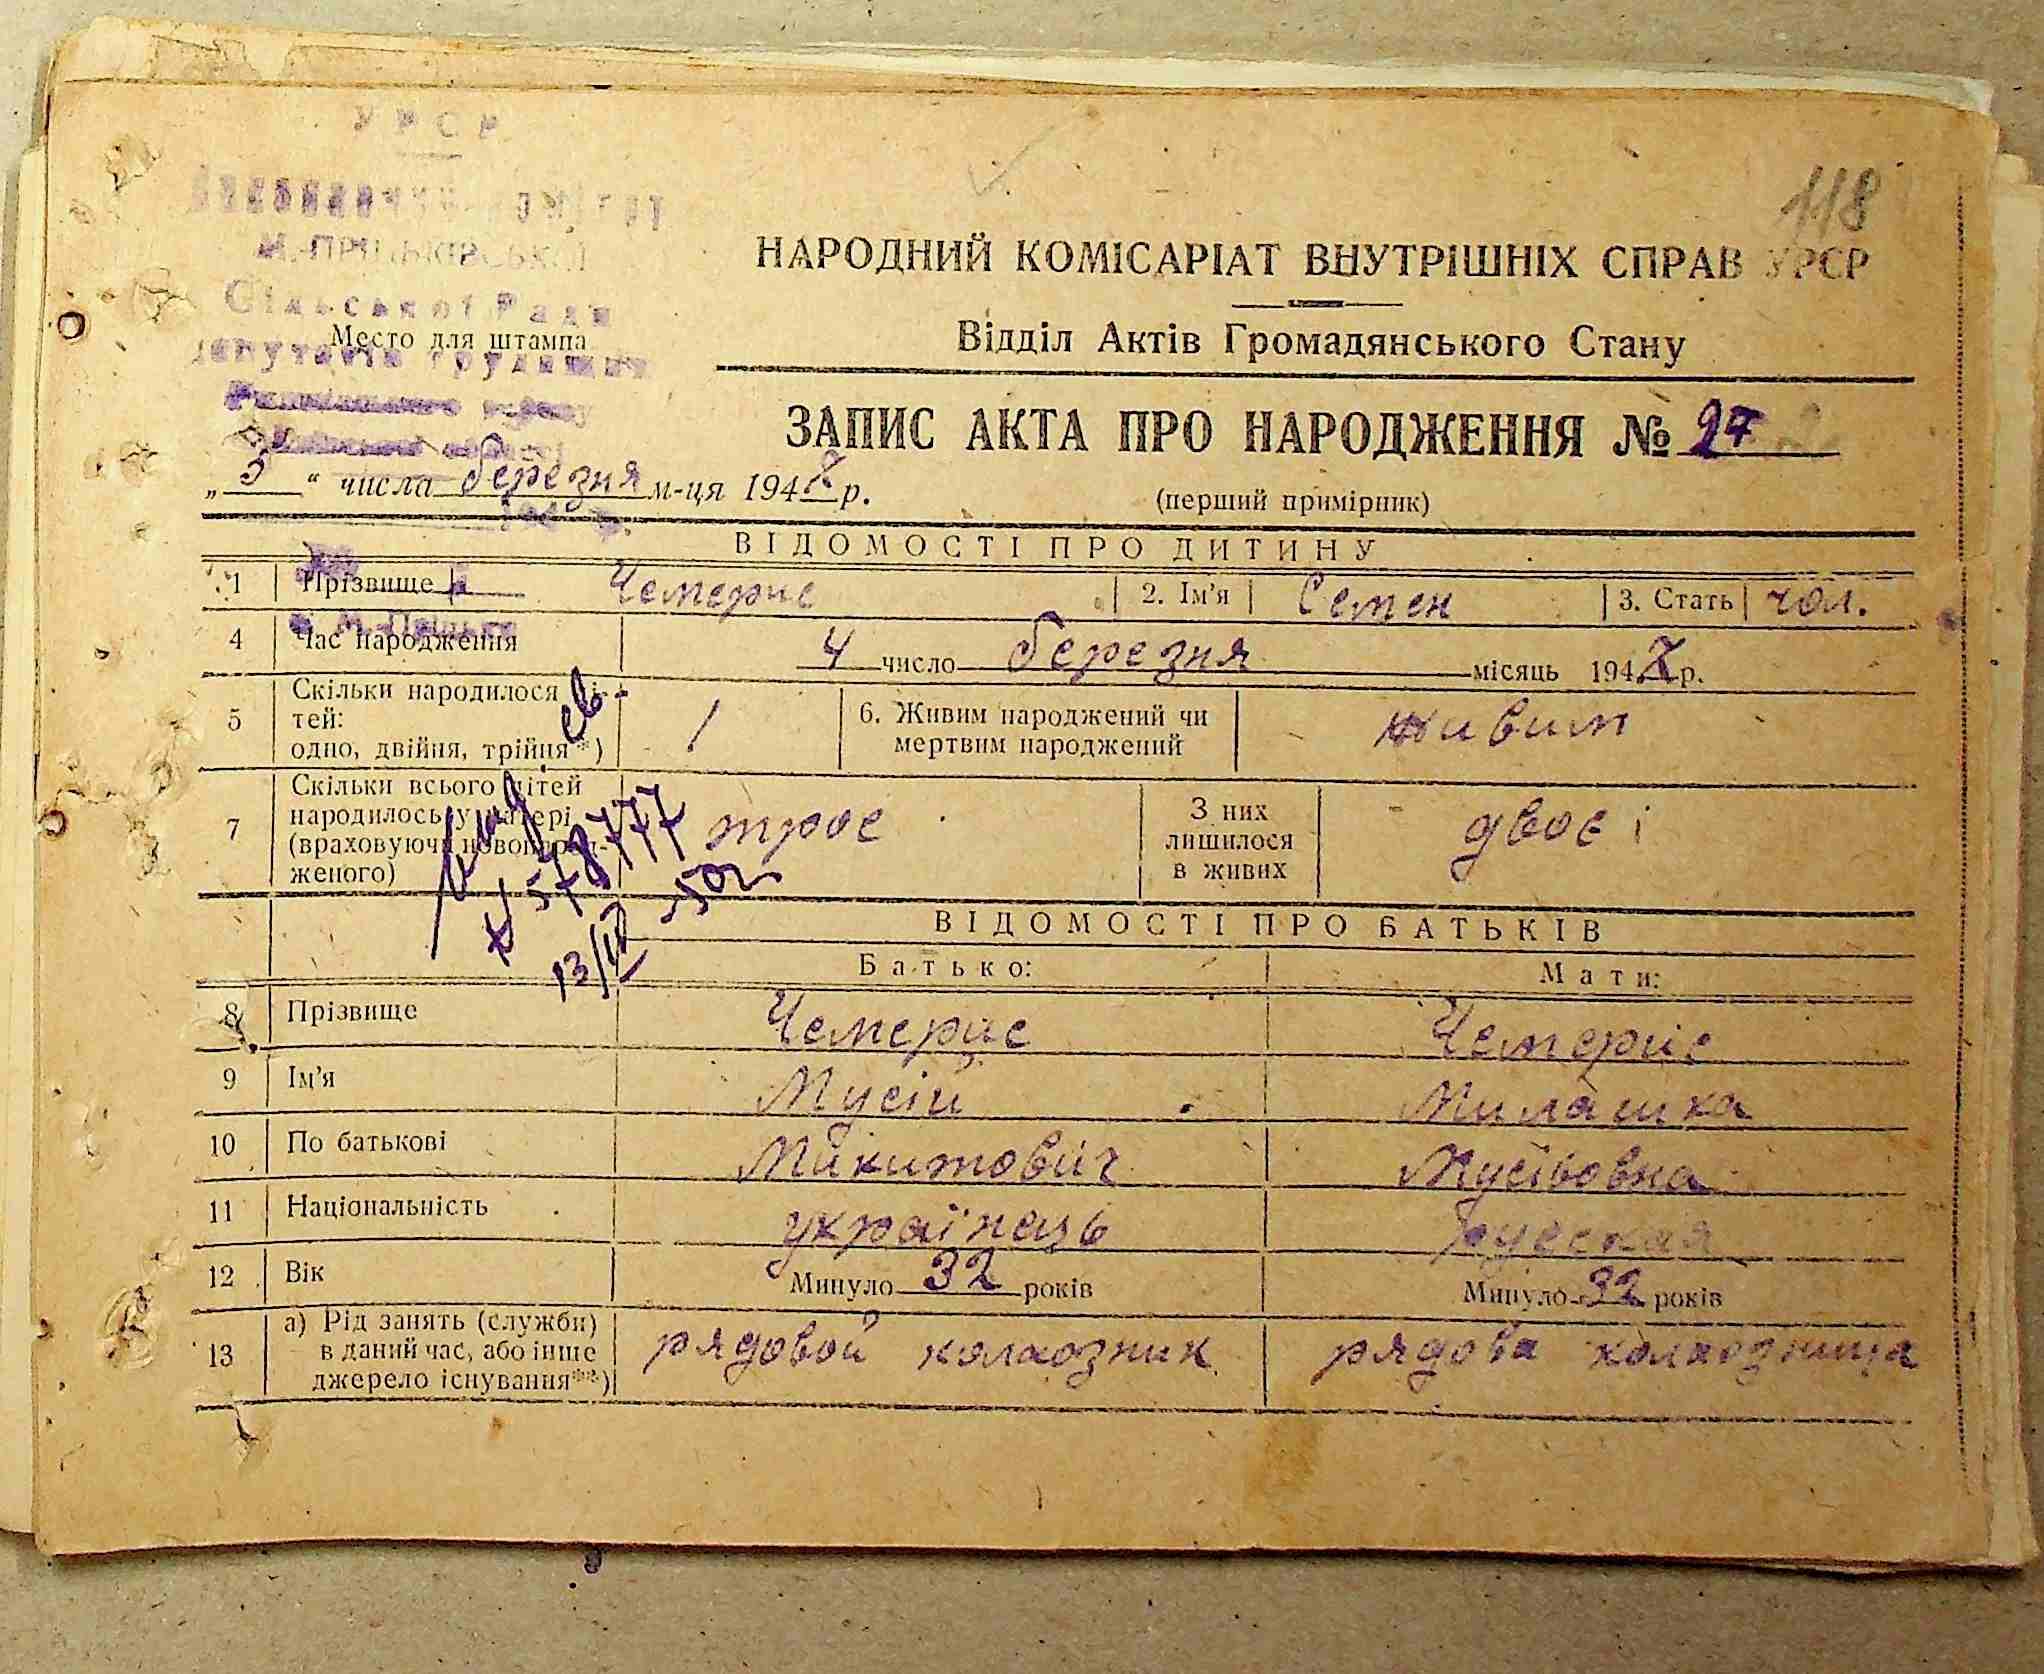 УРСР
118
НАРОДНИЙ КОМІСАРІАТ ВНУТРІШНІХ СПРАВ УРСР
Сільської Ради
Відділ Актів Громадянського Стану
Место для штампа
депутатів трудящих
ЗАПИС АКТА ПРО НАРОДЖЕННЯ № 27
„5“ числа березня м-ця 1948 р.
(перший примірник)
ВІДОМОСТІ ПРО ДИТИНУ
1 Прізвище Чемерис 2. Ім'я Семен 3. Стать чол.
4 Час народження 4 число березня місяць 194 р.
5 Скільки народилося ді-
тей:
одно, двійня, трійня*) 1 6. Живим народжений чи
мертвим народжений живим
7 Скільки всього дітей
народилось у матері
(враховуючи новонарод-
женого) троє З них
лишилося
в живих двоє
578777
13/III -50
ВІДОМОСТІ ПРО БАТЬКІВ
Батько: Мати:
8 Прізвище Чемерис Чемерис
9 Ім'я Мусій Милашка
10 По батькові Микитович Мусіївовна
11 Національність українець русская
12 Вік Минуло 32 років Минуло 32 років
13 а) Рід занять (служби)
в даний час, або інше
джерело існування**) рядовой колхозник рядова колхозница